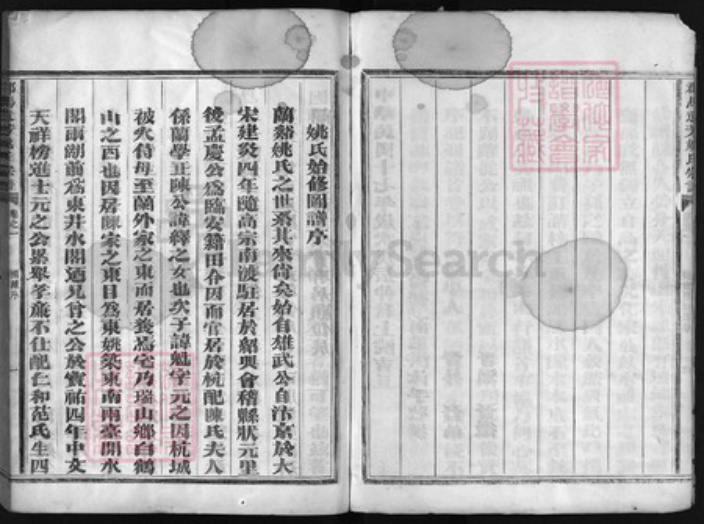 姚氏始修圖譜序
蘭谿姚氏之世系其來尚矣始自雄武公自汴京於大
宋建炎四年隨高宗南渡駐居於紹興會稽縣狀元里
後孟慶公爲臨安籍田令因而官居於杭配陳氏夫人
係蘭學正陳公諱繹之女也次子諱魁字元之因杭城
被火侍母至蘭外家之東而居養焉宅乃瑞山鄉白鶴
山之西也因居陳家之東目爲東姚築東南兩臺開水
閣兩湖前爲東井水閣迺兄曾之公於寶祐四年中文
天祥榜進士元之公累舉孝廉不仕配仁和范氏生四